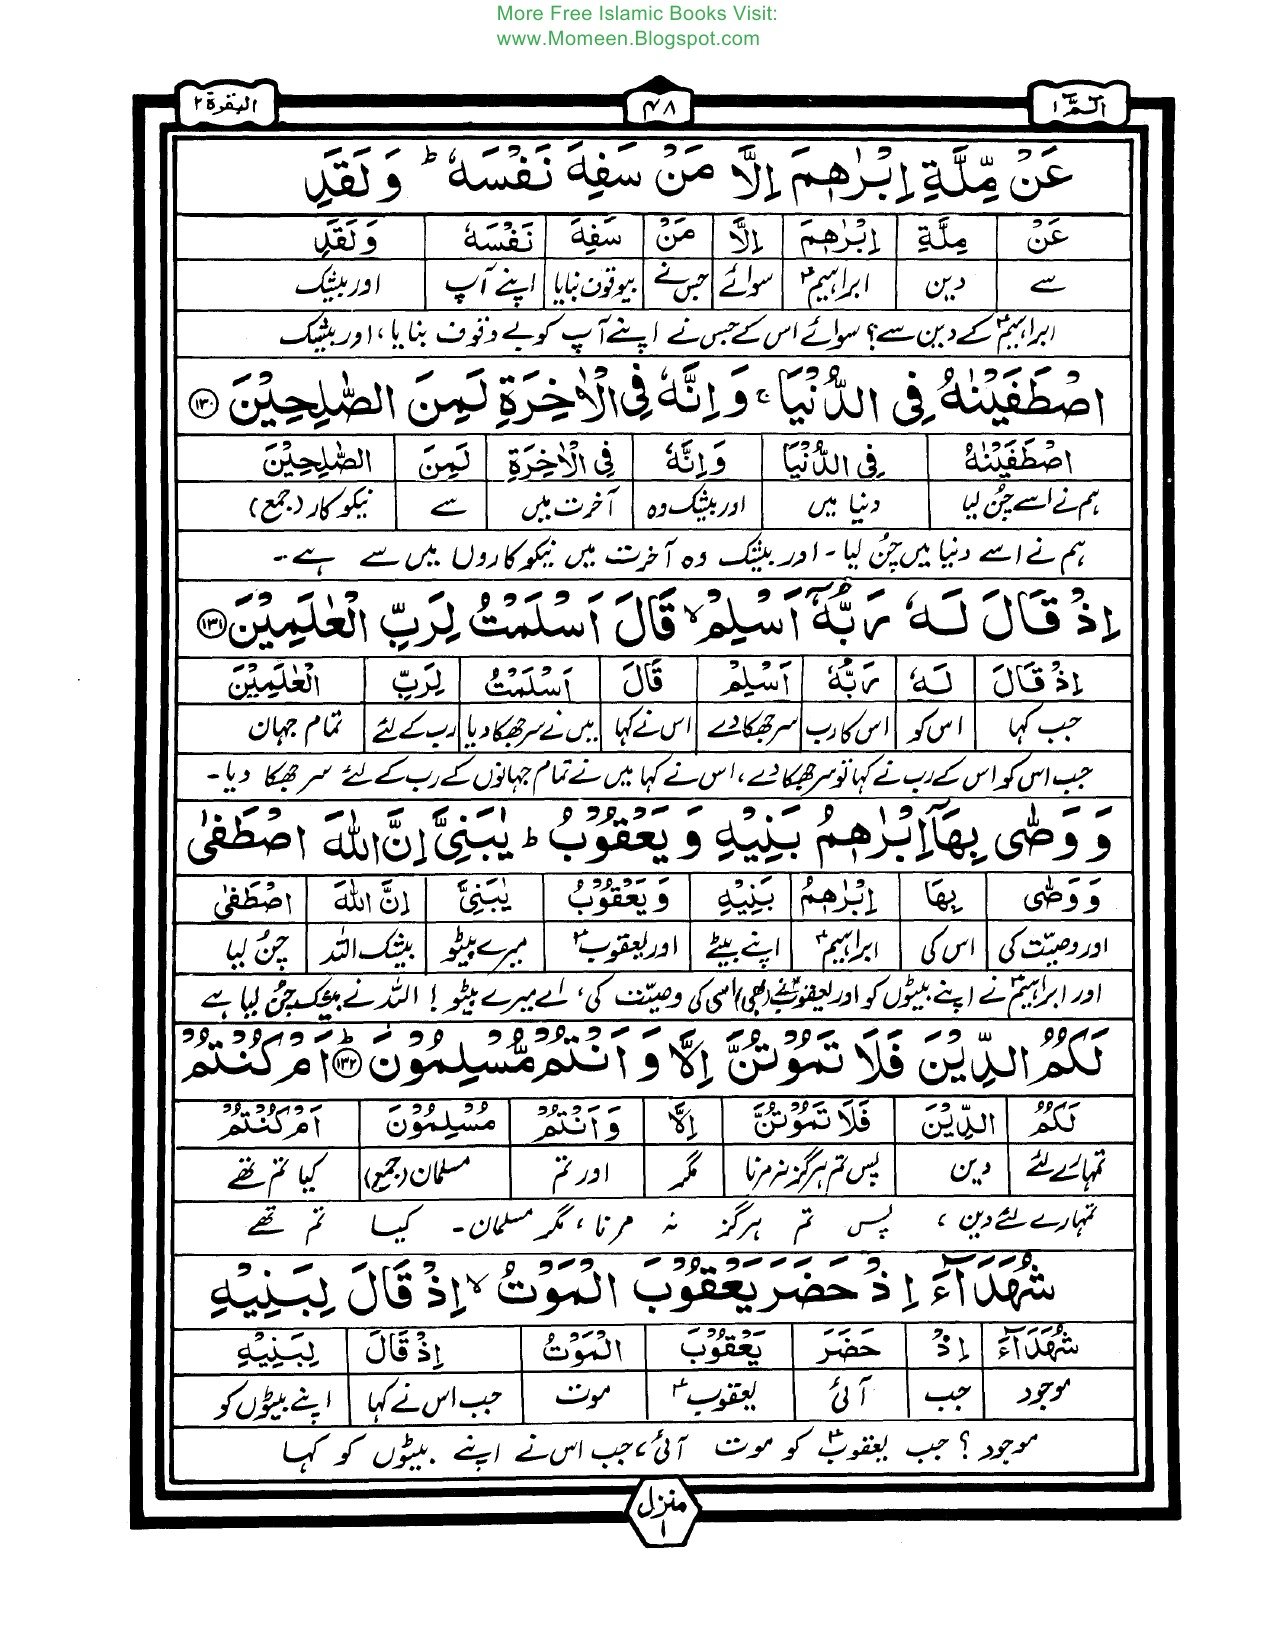 More Free Islamic Books Visit:
www.Momeen.Blogspot.com
الٓمّٓ ۱ ۴۸ البقرة ۲
عَنْ مِّلَّةِ اِبْرٰهٖمَ اِلَّا مَنْ سَفِهَ نَفْسَهٗ ؕ وَ لَقَدِ
عَنْ مِلَّةِ اِبْرٰهٖمَ اِلَّا مَنْ سَفِهَ نَفْسَهٗ وَ لَقَدِ
سے دین ابراہیمؑ سوائے جس نے بیوقوف بنایا اپنے آپ اور بیشک
ابراہیمؑ کے دین سے؟ سوائے اس کے جس نے اپنے آپ کو بے وقوف بنایا، اور بیشک
اصْطَفَيْنٰهُ فِي الدُّنْيَا ۚ وَ اِنَّهٗ فِي الْاٰخِرَةِ لَمِنَ الصّٰلِحِيْنَ ۱۳۰
اصْطَفَيْنٰهُ فِي الدُّنْيَا وَ اِنَّهٗ فِي الْاٰخِرَةِ لَمِنَ الصّٰلِحِيْنَ
ہم نے اسے چن لیا دنیا میں اور بیشک وہ آخرت میں سے نیکو کار (جمع)
ہم نے اسے دنیا میں چُن لیا۔ اور بیشک وہ آخرت میں نیکو کاروں میں سے ہے۔
اِذْ قَالَ لَهٗ رَبُّهٗۤ اَسْلِمْ ۙ قَالَ اَسْلَمْتُ لِرَبِّ الْعٰلَمِيْنَ ۱۳۱
اِذْ قَالَ لَهٗ رَبُّهٗ اَسْلِمْ قَالَ اَسْلَمْتُ لِرَبِّ الْعٰلَمِيْنَ
جب کہا اس کو اس کا رب سر جھکا دے اس نے کہا میں نے سر جھکا دیا رب کے لئے تمام جہان
جب اس کو اس کے رب نے کہا تو سر جھکا دے، اس نے کہا میں نے تمام جہانوں کے رب کے لئے سر جھکا دیا۔
وَ وَصّٰى بِهَاۤ اِبْرٰهٖمُ بَنِيْهِ وَ يَعْقُوْبُ ؕ يٰبَنِيَّ اِنَّ اللّٰهَ اصْطَفٰى
وَ وَصّٰى بِهَا اِبْرٰهٖمُ بَنِيْهِ وَ يَعْقُوْبُ يٰبَنِيَّ اِنَّ اللّٰهَ اصْطَفٰى
اور وصیت کی اس کی ابراہیمؑ اپنے بیٹے اور یعقوبؑ میرے بیٹو بیشک اللہ چُن لیا
اور ابراہیمؑ نے اپنے بیٹوں کو اور یعقوبؑ نے (بھی) اسی کی وصیّت کی، اے میرے بیٹو! اللہ نے بیشک چُن لیا ہے
لَكُمُ الدِّيْنَ فَلَا تَمُوْتُنَّ اِلَّا وَ اَنْتُمْ مُّسْلِمُوْنَ ؕ ۱۳۲ اَمْ كُنْتُمْ
لَكُمُ الدِّيْنَ فَلَا تَمُوْتُنَّ اِلَّا وَ اَنْتُمْ مُسْلِمُوْنَ اَمْ كُنْتُمْ
تمہارے لئے دین پس تم ہرگز نہ مرنا مگر اور تم مسلمان (جمع) کیا تم تھے
تمہارے لئے دین، پس تم ہرگز نہ مرنا، مگر مسلمان۔ کیا تم تھے
شُهَدَآءَ اِذْ حَضَرَ يَعْقُوْبَ الْمَوْتُ ۙ اِذْ قَالَ لِبَنِيْهِ
شُهَدَآءَ اِذْ حَضَرَ يَعْقُوْبَ الْمَوْتُ اِذْ قَالَ لِبَنِيْهِ
موجود جب آئی یعقوبؑ موت جب اس نے کہا اپنے بیٹوں کو
موجود؟ جب یعقوبؑ کو موت آئی، جب اس نے اپنے بیٹوں کو کہا
منزل ۱